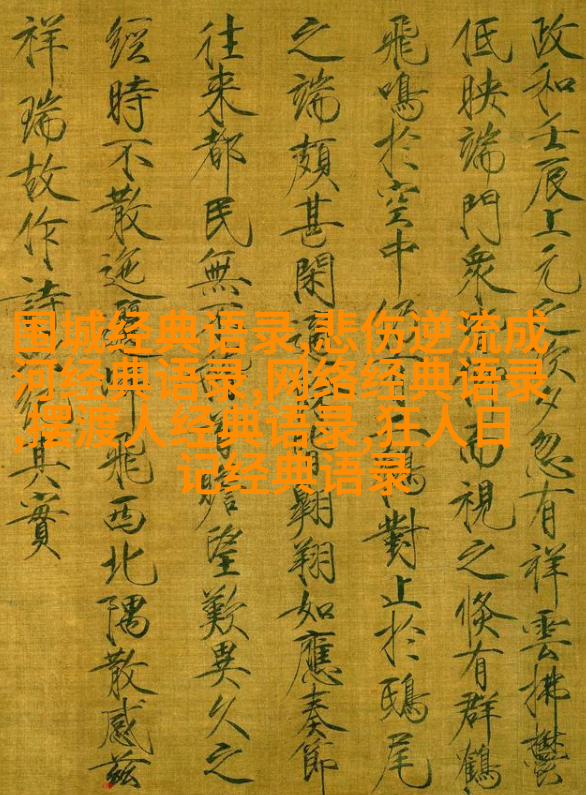 政和壬辰上元之次夕忽有祥雲拂鬱
低映端門衆而視之倏有群鶴
飛鳴於空中鶴對止於鴟尾
之端頗甚閑翱翔如應奏節
往來都民無瞻望歎異久之
經時不散迤飛西北隅散感茲
祥瑞故作詩其實
围城经典语录,悲伤逆流成
河经典语录,网络经典语录
,摆渡人经典语录,狂人日
记经典语录